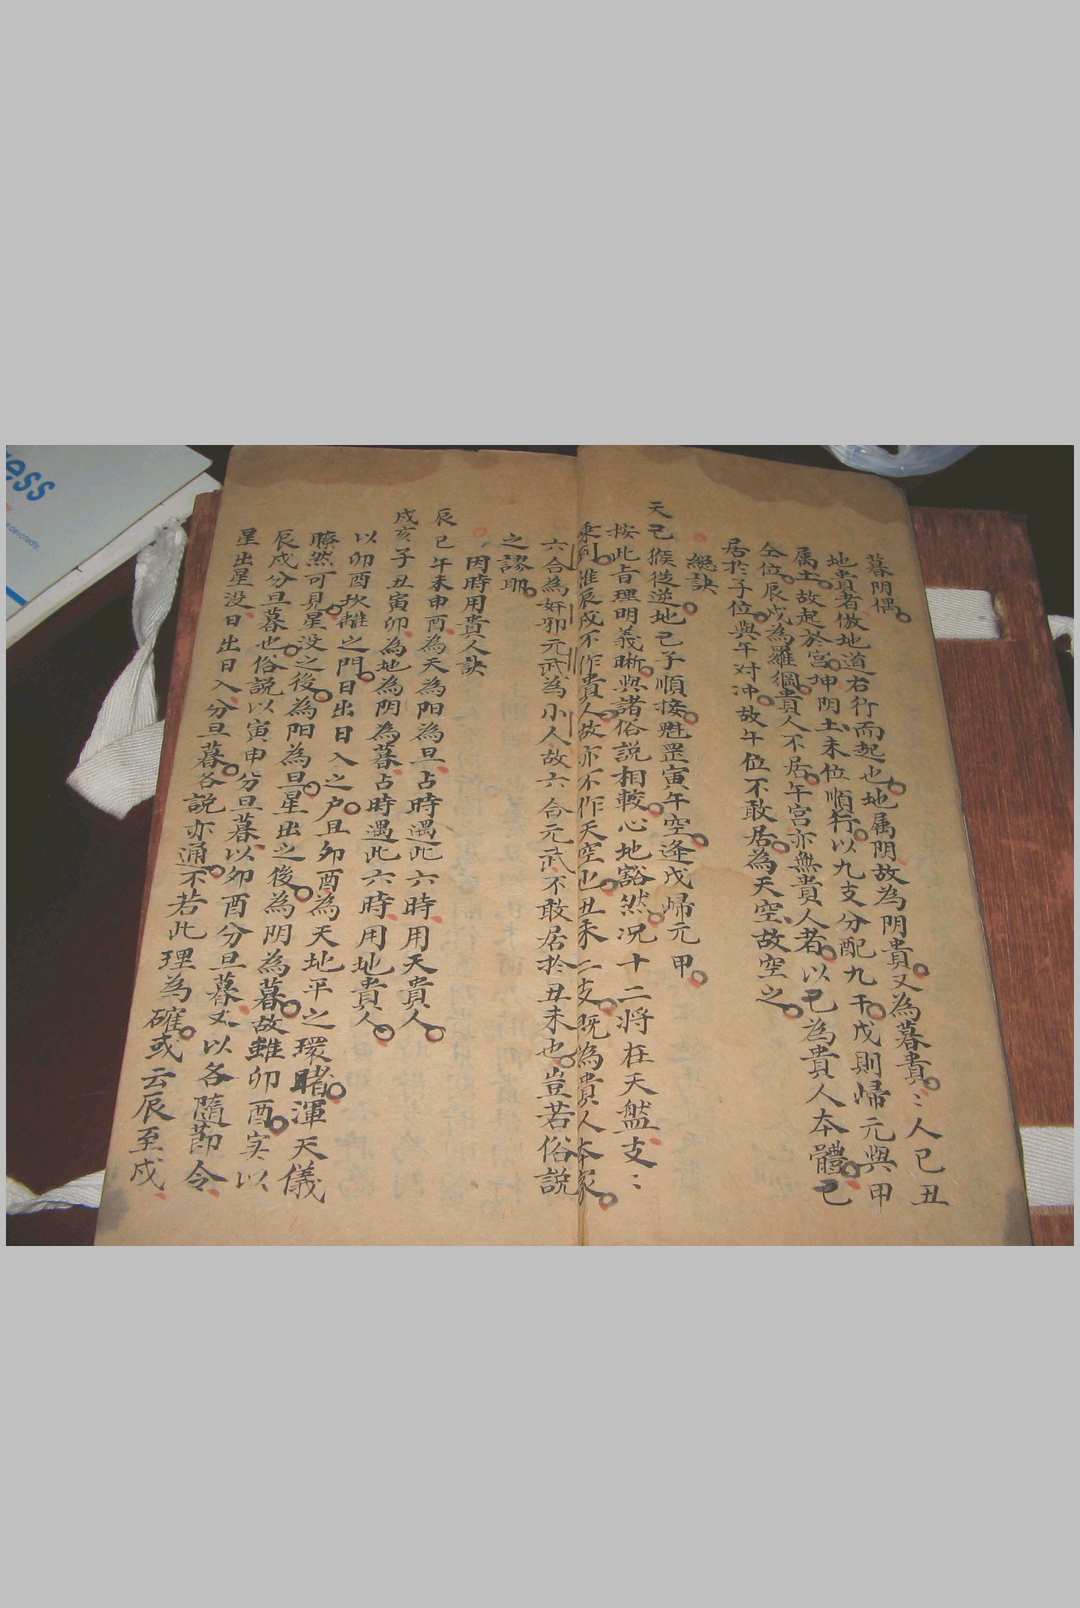 暮陰偶
地貴者倣地道右行而起也地属阴故為阴貴又為暮貴⺀人己丑
属土故起於宮坤阴土未位順行以九支分配九干戊則帰元與甲
仝位辰戌為羅網貴人不居午宮亦無貴人者以己為貴人本體己
居於子位與午对冲故午位不敢居為天空故空之
總訣
天己猴逆地己子順接魁罡寅午空逢戊帰元甲
按此旨理明義晰與諸俗説相較心地豁然况十二將在天盤支⺀
乘到惟辰戌不作貴人故亦不作天空也丑未二支既為貴人本家
六合為奸邪元武為小人故六合元武不敢居於丑未也豈若俗説
之謬耶
因時用貴人訣
辰巳午未申酉為天為阳為旦占時遇此六時用天貴人
戌亥子丑寅卯為地為阴為暮占時遇此六時用地貴人
以卯酉坎離之門日出日入之户且夘酉為天地平之環睹渾天儀
瞭然可見星没之後為阳為旦星出之後為阴為暮故雖卯酉实以
辰戌分旦暮也俗説以寅申分旦暮以卯酉分旦暮又以各隨節令
星出星没日出日入分旦暮各説亦通不若此理為確或云辰至戌
ess